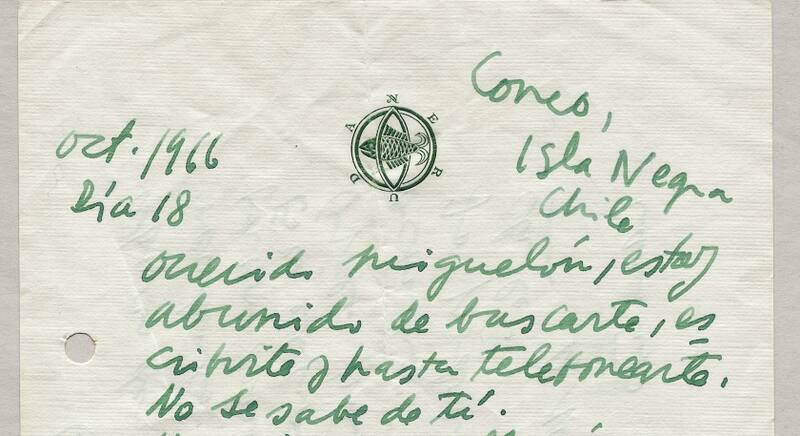 NERUDA
Correo,
Isla Negra
Chile
oct. 1966
Día 18
Querido Miguelón, estoy
aburrido de buscarte, es
cribirte y hasta telefonearte.
No se sabe de tí.